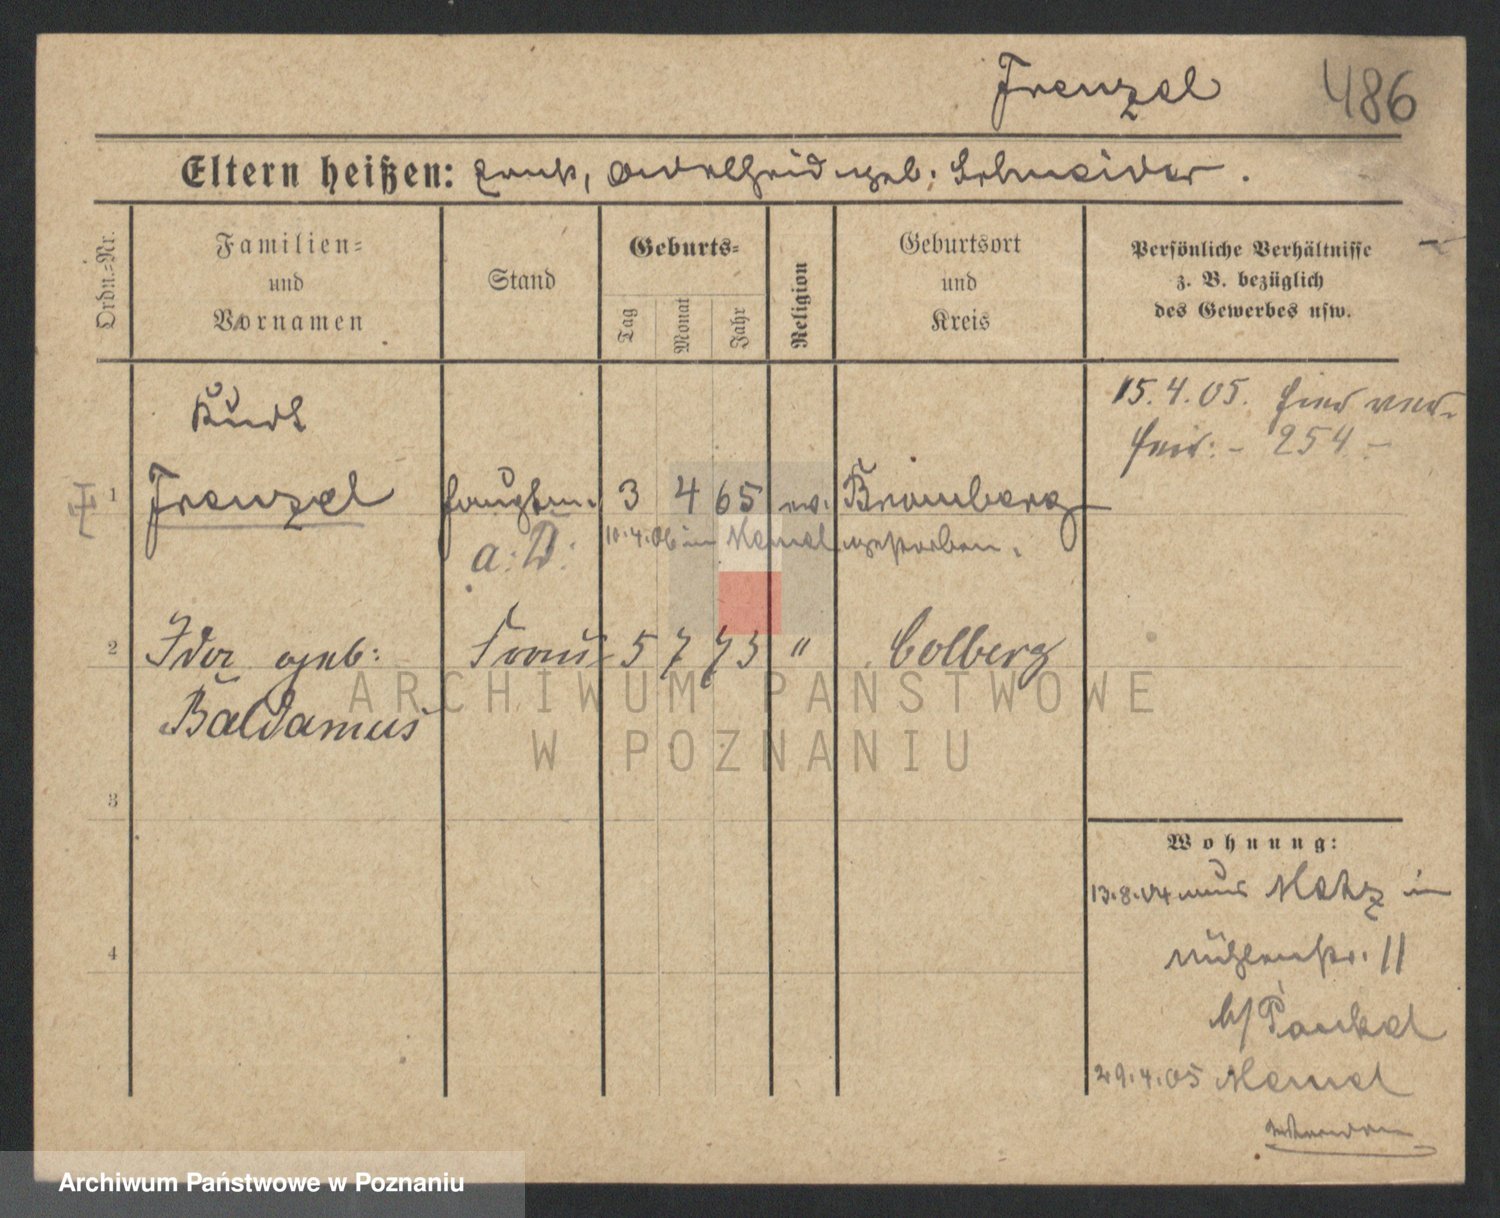 Frenzel 486
Eltern heißen: Ernst, Adelheid geb. Schneider.
Ordn.-Nr.
Familien-
und
Vornamen
Stand
Geburts-
Tag
Monat
Jahr
Religion
Geburtsort
und
Kreis
Persönliche Verhältnisse
z. B. bezüglich
des Gewerbes usw.
15.4.05.
254
Kurt
1 Frenzel Hauptm. 3 4 65 ev. Bromberg
a. D. 10.4.06 in Memel gestorben.
2 Ida geb: Frau 5 7 73 " Colberg
Baldamus
3
4
Wohnung:
13.8.04 aus Metz in
Mühlenstr. 11
b/
29.4.05 Memel
ARCHIWUM PAŃSTWOWE
W POZNANIU
Archiwum Państwowe w Poznaniu